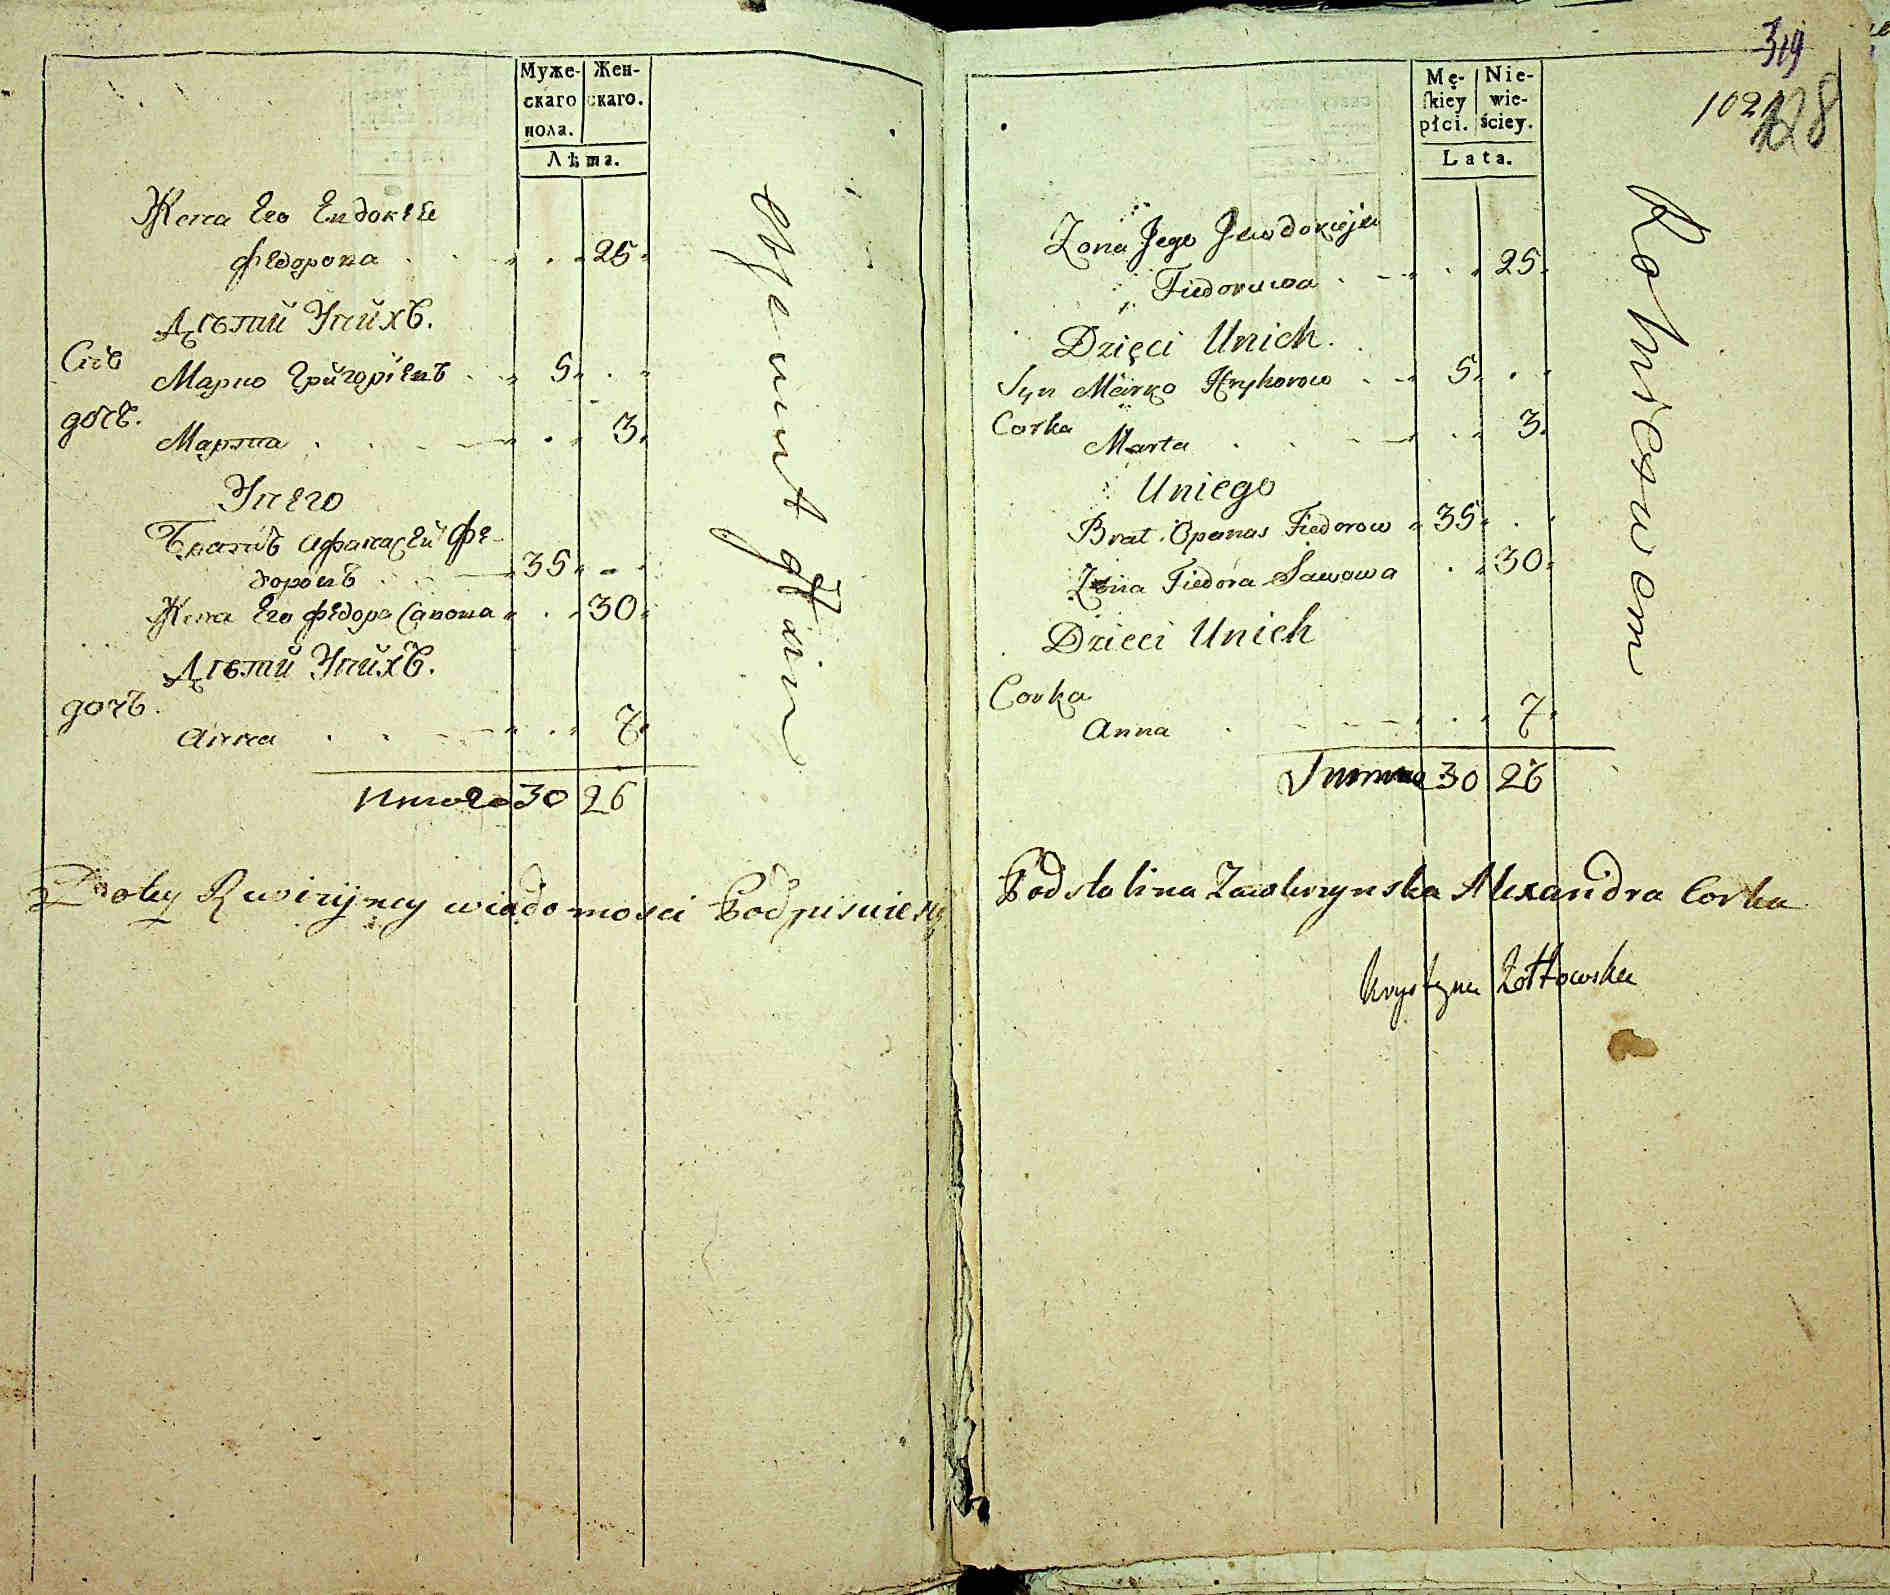 Муже-
скаго
пола.
Жен-
скаго.
Лѣта.
Жена Его Евдокея
Федорова 25
Дѣтй Унйхъ.
Снъ Марко Григорiевъ 5
дочъ. Марта 3
Унего
Братъ Афанасей Фе-
доровъ 35
Жена Его Федора Савова 30
Дѣтй Унйхъ.
дочъ.
Анна 7
Итого 30 26
Do tey Rewizyiney wiadomosci Podpisuie się
319
102
128
Mę-
ſkiey
płci.
Nie-
wie-
ściey.
Lata.
Zona Jego Jewdokieja
Fiedorowa 25
Dzięci Unich.
Syn Marko Hryhorow 5
Corka
Marta 3
Uniego
Brat Opanas Fiedorow 35
Zona Fiedora Sawowa 30
Dzieci Unich
Corka
Anna 7
Summa 30 26
Podstolina Alexandra Corka
Krystyna Zołtowska